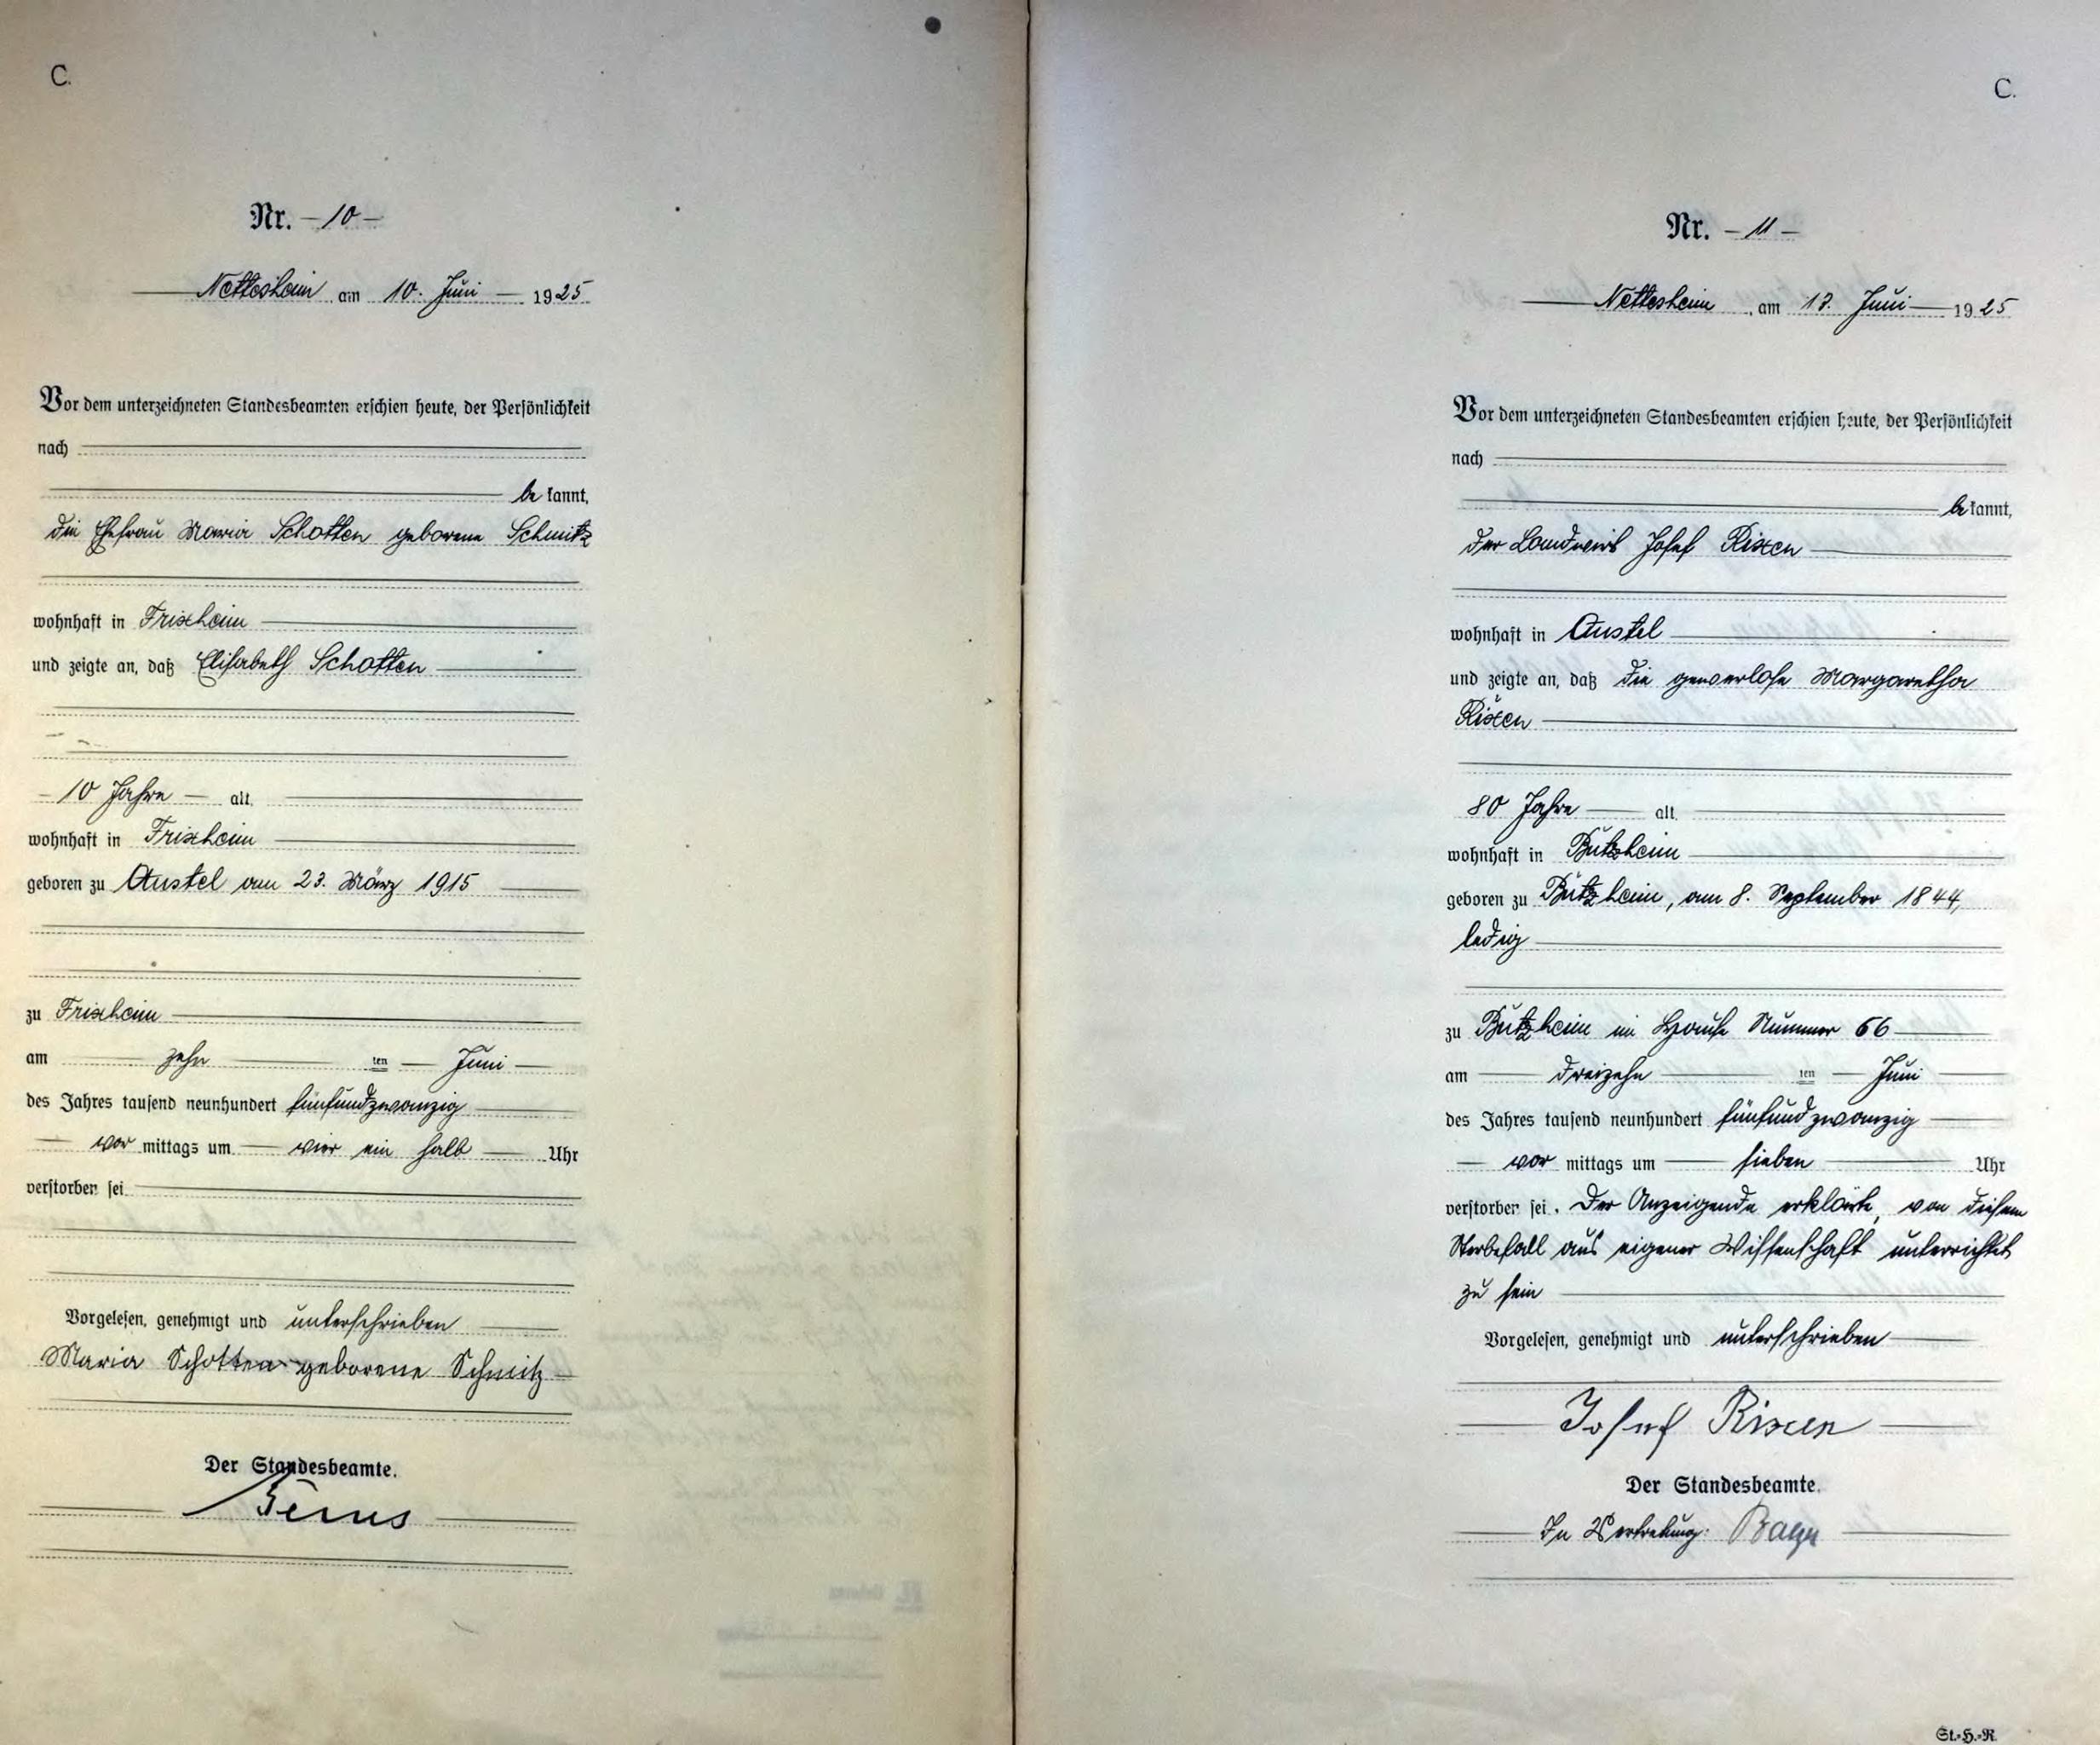 C.
Nr. – 10 –
Nettesheim am 10. Juni 1925
Vor dem unterzeichneten Standesbeamten erschien heute, der Persönlichkeit
nach
be kannt,
die Ehefrau Maria Schotten geborene Schmitz
wohnhaft in Frixheim
und zeigte an, daß Elisabeth Schotten
10 Jahre alt,
wohnhaft in Frixheim
geboren zu Anstel am 23. März 1915
zu Frixheim
am zehn ten Juni
des Jahres tausend neunhundert fünfundzwanzig
vor mittags um vier ein halb Uhr
verstorben sei
Vorgelesen, genehmigt und unterschrieben
Maria Schotten geborene Schmitz
Der Standesbeamte.
C.
Nr. – 11 –
Nettesheim, am 13. Juni 1925
Vor dem unterzeichneten Standesbeamten erschien heute, der Persönlichkeit
nach
be kannt,
der Landwirt Josef Rixen
wohnhaft in Anstel
und zeigte an, daß die gewerlose Margaretha
Rixen
80 Jahre alt,
wohnhaft in Bützheim
geboren zu Bützheim, am 8. September 1844,
ledig
zu Bützheim im Hause Nummer 66
am dreizehn ten Juni
des Jahres tausend neunhundert fünfundzwanzig
vor mittags um sieben Uhr
verstorben sei. Der Anzeigende erklärte, von diesem
Sterbefall aus eigener Wissenschaft unterrichtet
zu sein
Vorgelesen, genehmigt und unterschrieben
Josef Rixen
Der Standesbeamte.
In Vertretung:
St.-H.-R.